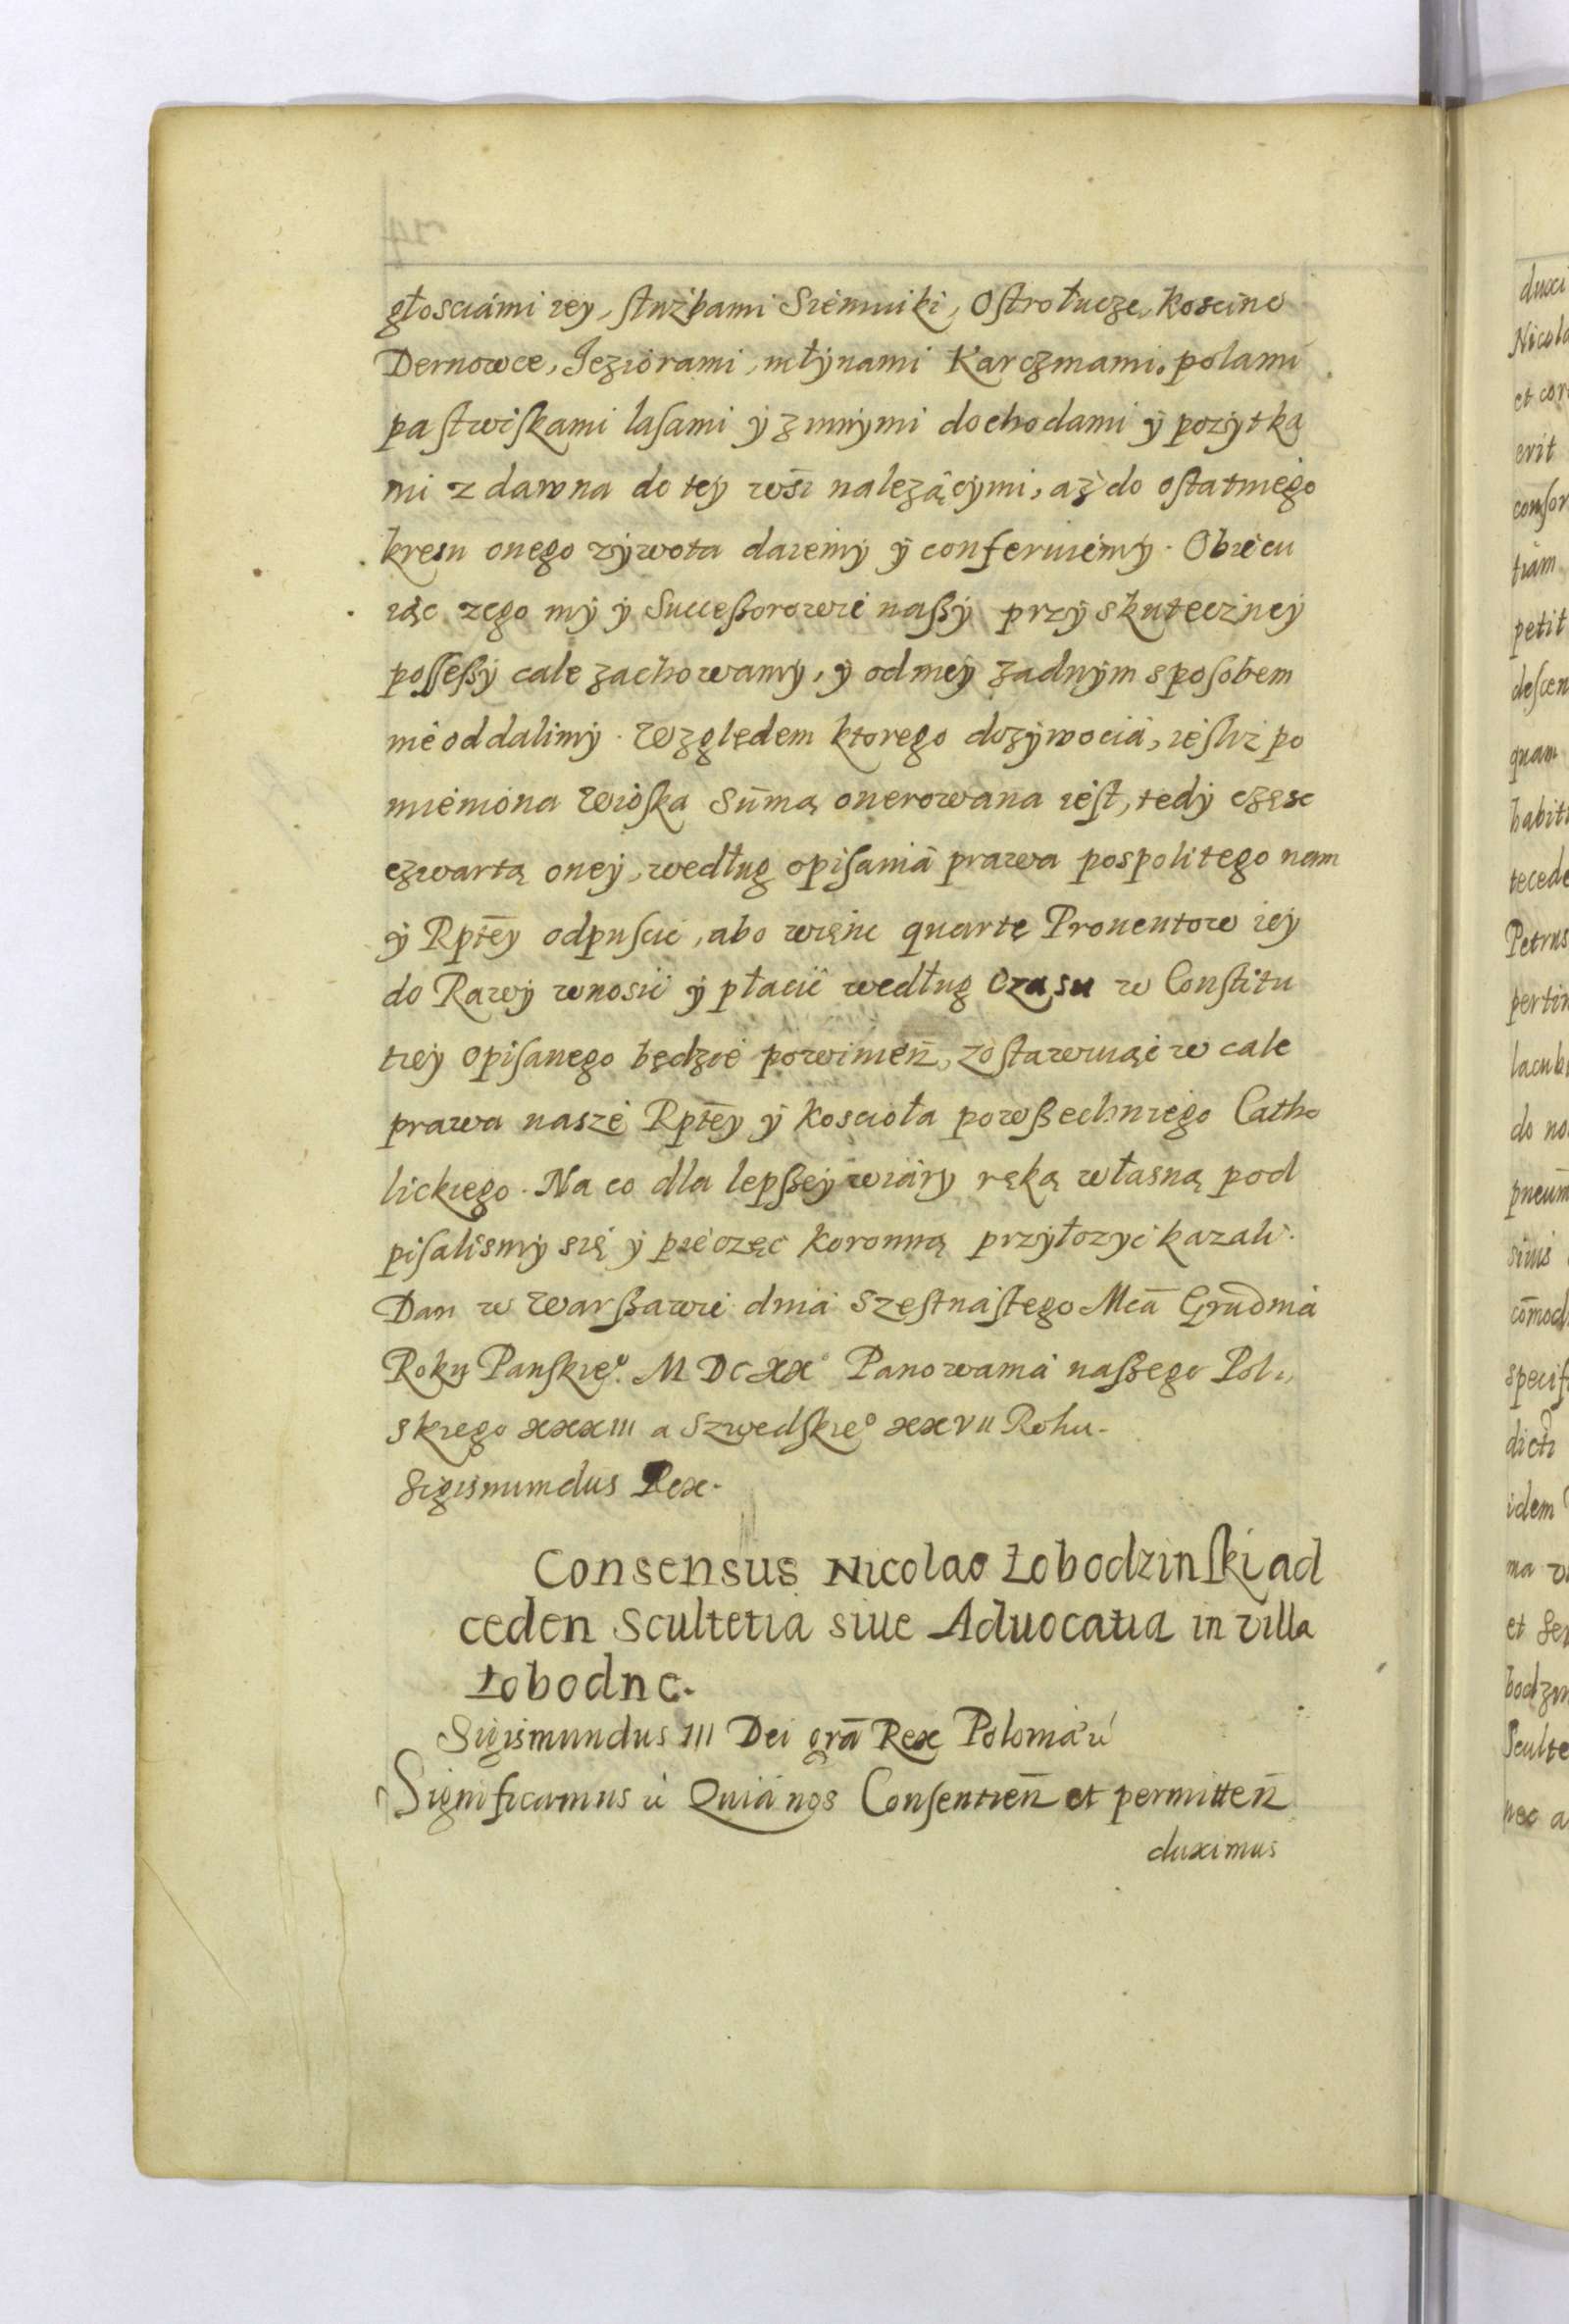 głosciámi iey, służbami Siemuiki, Ostrołucze, Koscino
Dernowce, Jeziorami, młynami Karczmami, polami
pastwiskami lasami ÿ z innymi dochodami ÿ pożytka
mi z dawna do teÿ wsi należącymi, aż do ostatniego
kresu onego zÿwota daiemÿ ÿ conferuiemÿ. Obiecu
iąc zego mÿ ÿ Successorowie naßÿ przÿ skuteczneÿ
possessÿ cale zachowamy, ÿ od nieÿ żadnÿm sposobem
nie oddalimÿ. Względem ktorego dożywocia, ieśliż po
mieniona Wioska Sūmą onerowana iest, tedÿ częsc
czwartą oneÿ, według opisania prawa pospolitego nam
ÿ Rptēy odpuscic, abo więnc quartę Prouentow ieÿ
do Rawÿ wnosić ÿ płacić według Czasu w Constitu
tieÿ opisanego będzie powinien, zostawuiąc w cale
prawa nasze Rptēy ÿ Koscioła powßechniego Catho
lickiego. Na co dla lepßeÿ wiáry ręką własną pod
pisalismÿ się ÿ pieczęc Koronną przÿłozyc kazali.
Dan w Warßawie dnia Szesnastego Mcā Grudnia
Roku Panskie° M DC XX° Panowania naßego Pol
skiego XXXIII a Szwedskie° XXVII Roku.
Sigismundus Rex.
Consensus Nicolao Łobodzinski ad
ceden Scultetia siue Aduocatia in villa
Łobodno.
Sigismundus III Dei grā Rex Poloniæ
Significamus Quia nos Consentien̄ et permitten̄
duximus
duxi
Nicola
et con
erit
consor
tiam
petit
descen
quam
habit
tecede
Petrus
pertin
lacub
do no
pneum
simi
cōmod
specif
dicti
idem
ma
et
bodzin
Sculte
nec a